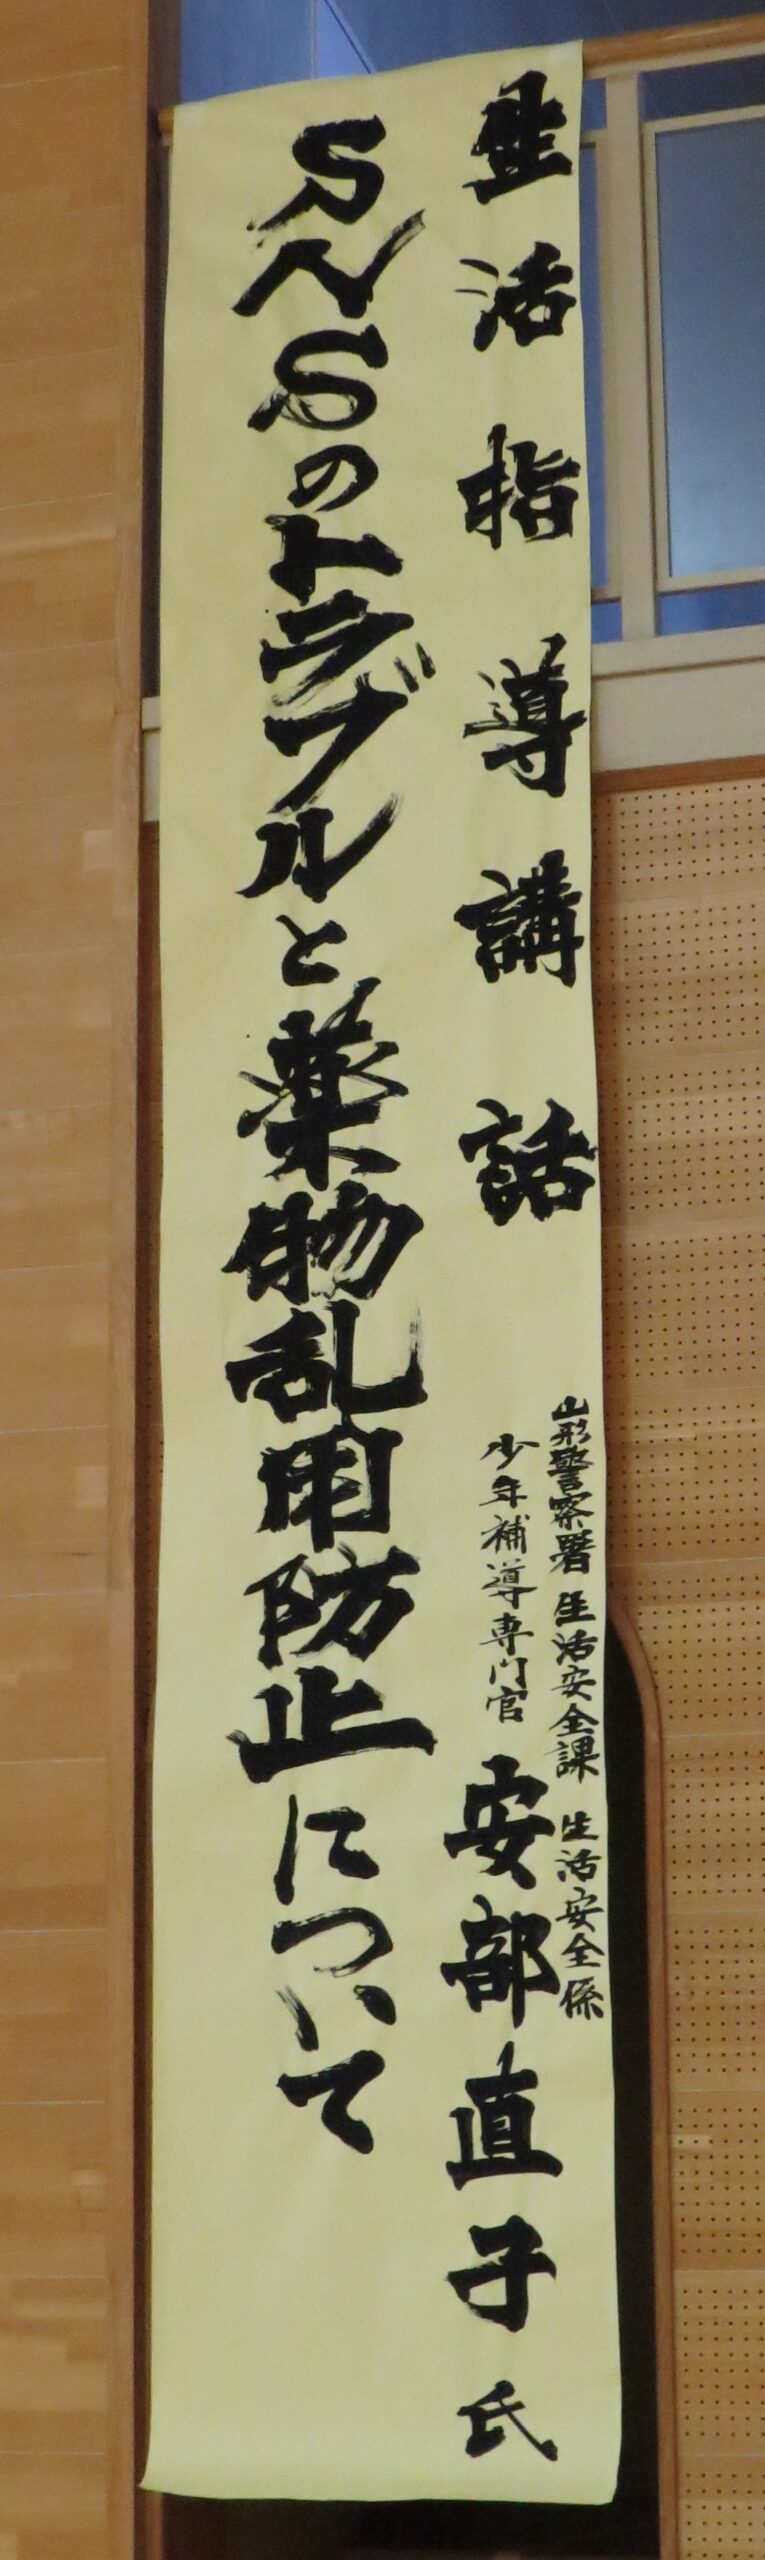 生活指導講話
山形警察署 生活安全課 生活安全係
少年補導専門官
安部直子氏
SNSのトラブルと薬物乱用防止について